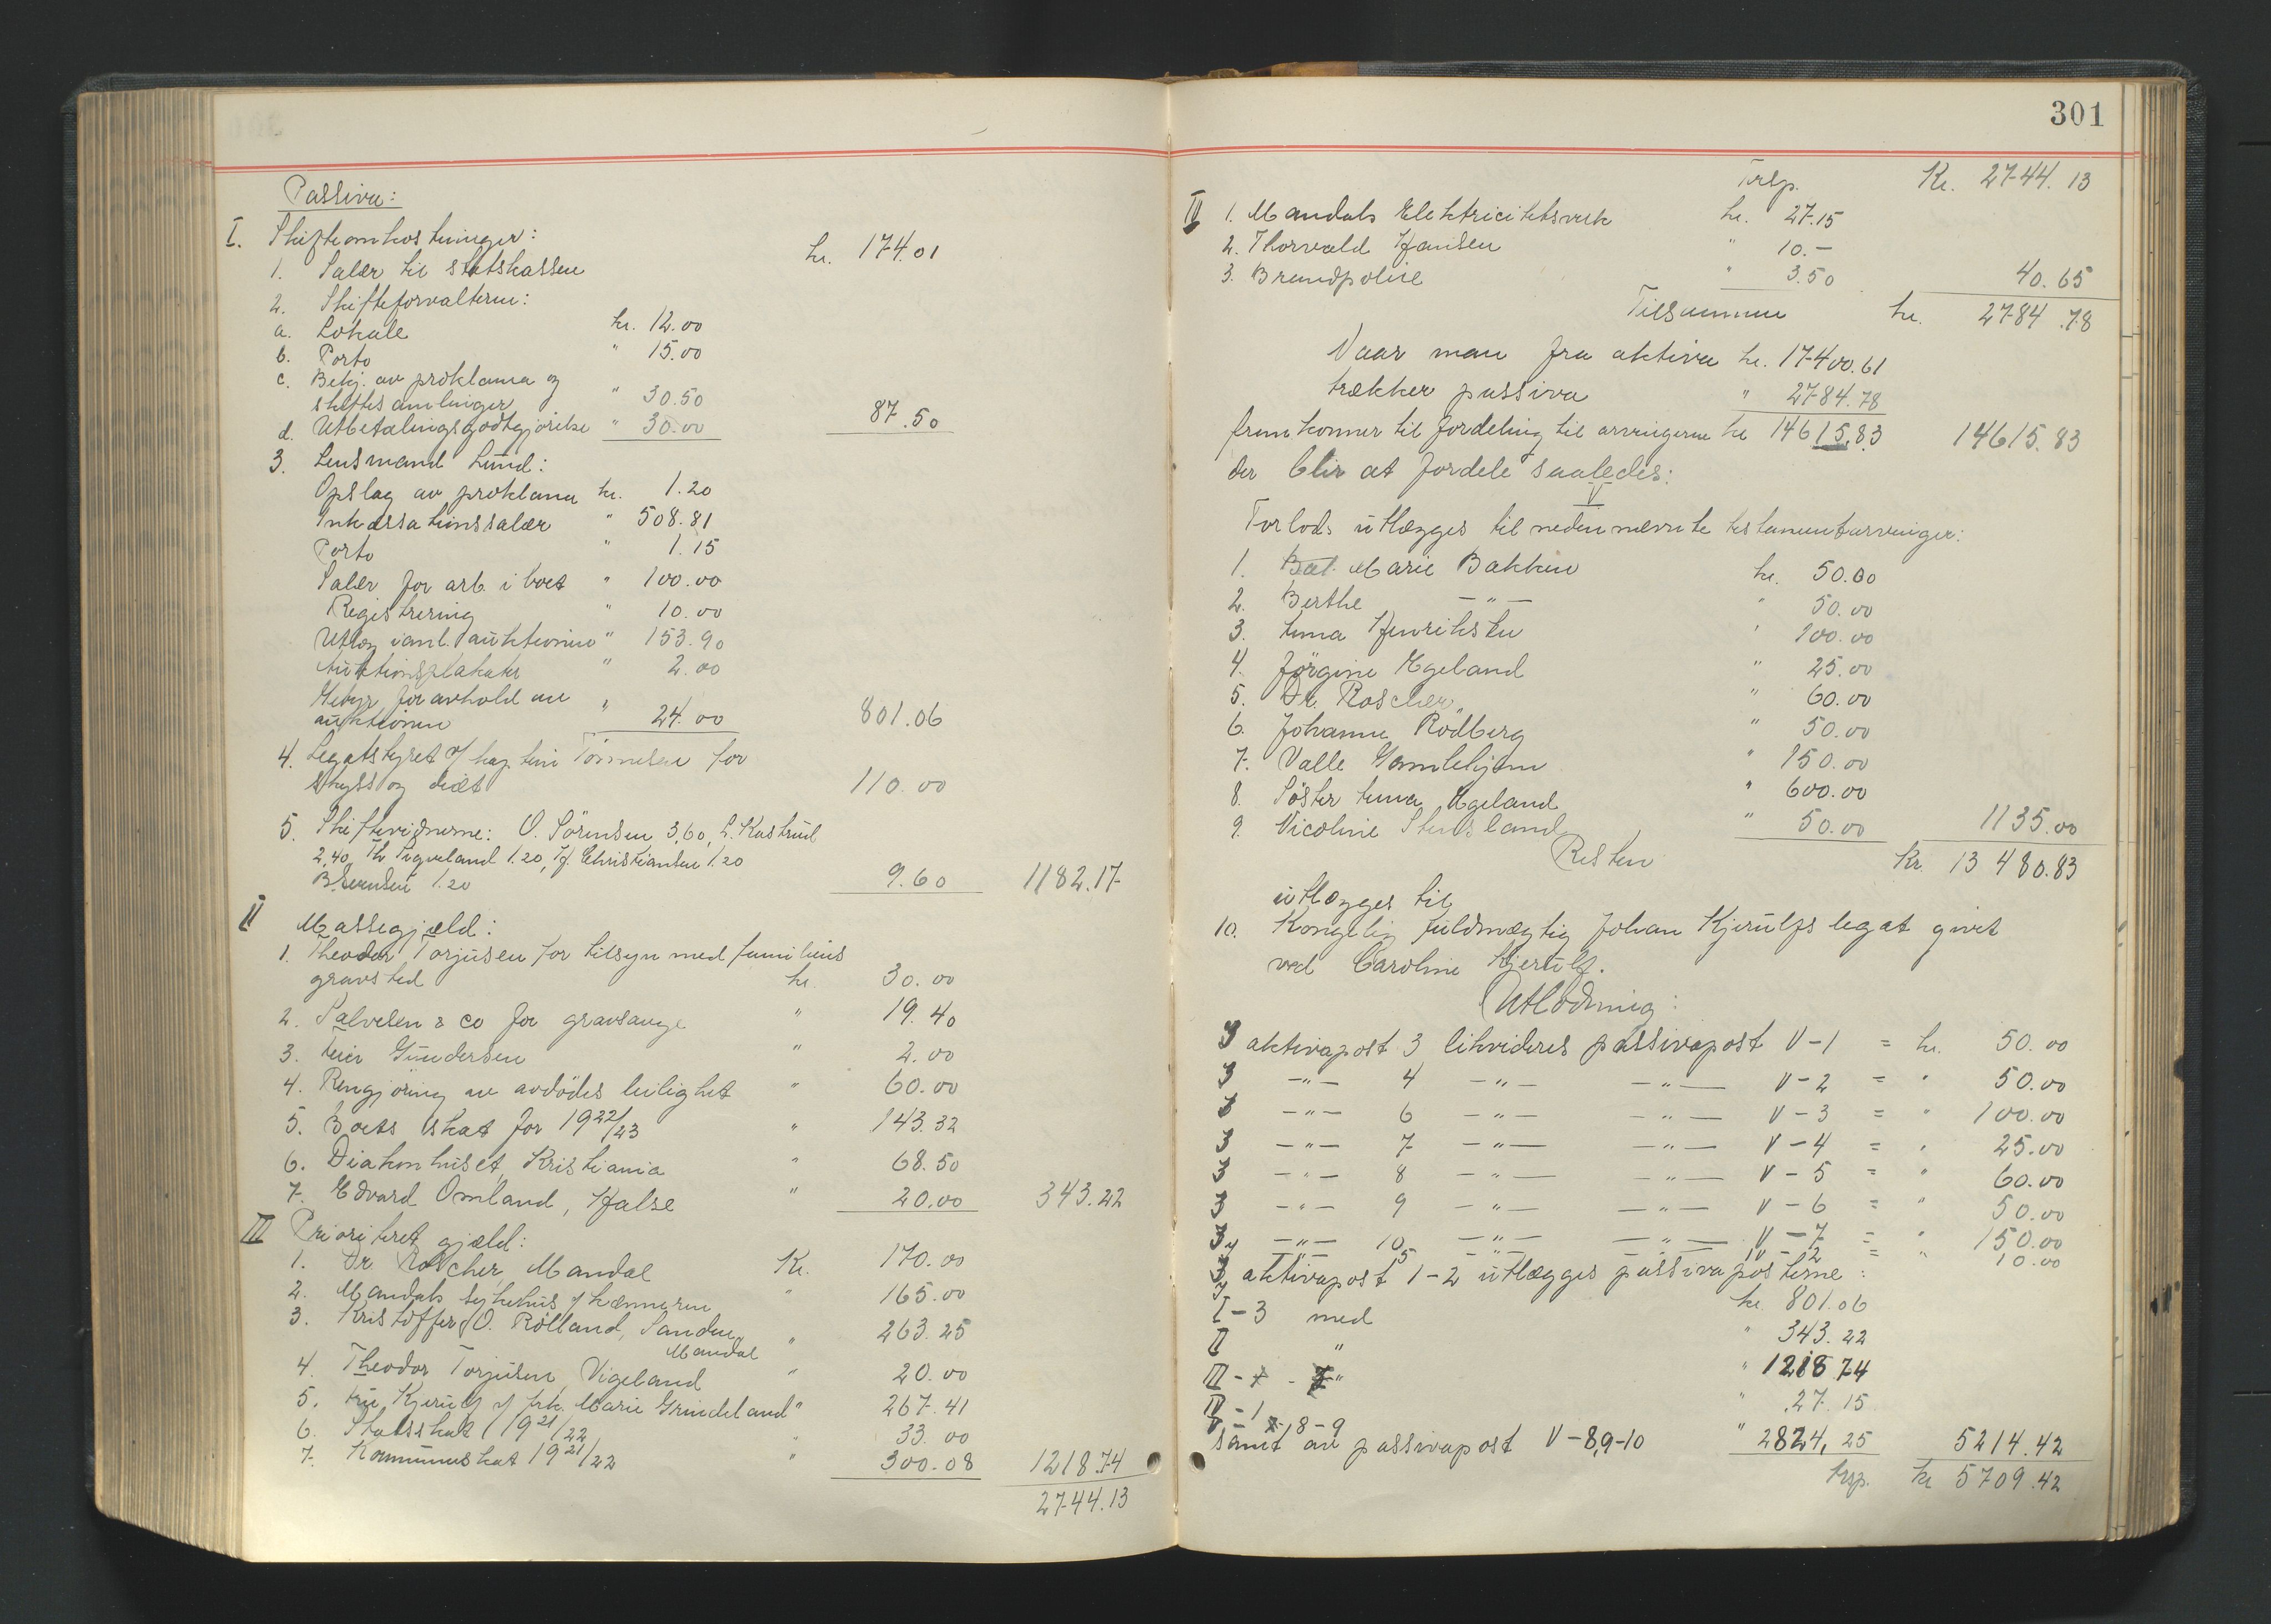 Passiva:
I. Skifteomkostninger:
1. Salær til statskassen kr. 174.01
2. Skifteforvalteren:
a. Lokale kr. 12.00
b. Porto " 15.00
c. Bekj. av proklama og
skiftesamlinger " 30.50
d. Utbetalingsgodtgjørelse " 30.00 87.50
3. Lensmand Lund:
Opslag av proklama kr. 1.20
Inkassationssalær " 508.81
Porto " 1.15
Salær for arb. i boet " 100.00
Registrering " 10.00
Utlæg vanl. auktionen " 153.90
Auktionsplakater " 2.00
Gebyr for avhold av "
auktionen 24.00 801.06
4. Legatstyret v/ kaptein Tönnesen for
skyss og diæt 110.00
5. Skiftevidnerne: O. Sörensen 3,60, L. Kastrud
2,40, Th Tregveland 1.20, H. Christiansen 1.20
B. Berntsen 1.20 9.60 1182.17
II Massegjæld:
1. Theodor Torjusen for tilsyn med familiens
gravsted kr. 30.00
2. Salvesen & co for gravsange " 19.40
3. Gundersen " 2.00
4. Rengjöring av avdödes leilighet " 60.00
5. Boets skat for 1922/23 " 143.32
6. Diakonhuset, Kristiania " 68.50
7. Edvard Omland, Halse " 20.00 343.22
III Prioritert gjæld:
1. Dr Roscher, Mandal Kr. 170.00
2. Mandals sykehus v/ kæmneren " 165.00
3. Kristoffer O. Rölland, Sanden,
Mandal " 263.25
4. Theodor Torjusen, Vigeland " 20.00
5. Kjerulf v/ frk. Marie Grindeland " 267.41
6. Statsskat 1921/22 " 33.00
7. Kommuneskat 1921/22 " 300.08 1218.74
2744.13
301
Trsp. Kr. 2744.13
IV 1. Mandals Elektricitetsverk kr. 27.15
2. Thorvald Hansen " 10.-
3. Brandpolise " 3.50 40.65
Tilsammen kr. 2784.78
Naar man fra aktiva kr. 17400.61
trækker passiva " 2784.78
fremkommer til fordeling til arvingerne kr 14615.83 14615.83
der blir at fordele saaledes:
V
Forlods utlægges til nedennævnte testamentarvinger:
1. Bal. Marie Bakken kr. 50.00
2. Berthe —"— " 50.00
3. Henriksen " 100.00
4. Jörgine Egeland " 25.00
5. Dr. Roscher " 60.00
6. Johanne Rödberg " 50.00
7. Valle Gamlehjem " 150.00
8. Söster Egeland " 600.00
9. Nicoline Stensland " 50.00 1135.00
Resten Kr. 13480.83
utlægges til
10. Kongelig fuldmægtig Johan Kjerulfs legat givet
ved Caroline Kjerulf.
Utlodning:
I aktivapost 3 likvideres passivapost V-1 = kr. 50.00
I —"— 4 —"— —"— V-2 = " 50.00
I —"— 6 —"— —"— V-3 = " 100.00
I —"— 7 —"— —"— V-4 = " 25.00
I —"— 8 —"— —"— V-5 = " 60.00
I —"— 9 —"— —"— V-6 = " 50.00
I —"— 10 —"— —"— V-7 = " 150.00
I —"— 5 —"— —"— IV-2 = " 10.00
I aktivapost 1-2 utlægges passivaposterne:
I-3 med kr. 801.06
II " " 343.22
III - " " 1218.74
IV-1 " 27.15
samt av passivapost V-8,9-10 " 2824,25 5214.42
trsp. kr 5709.42